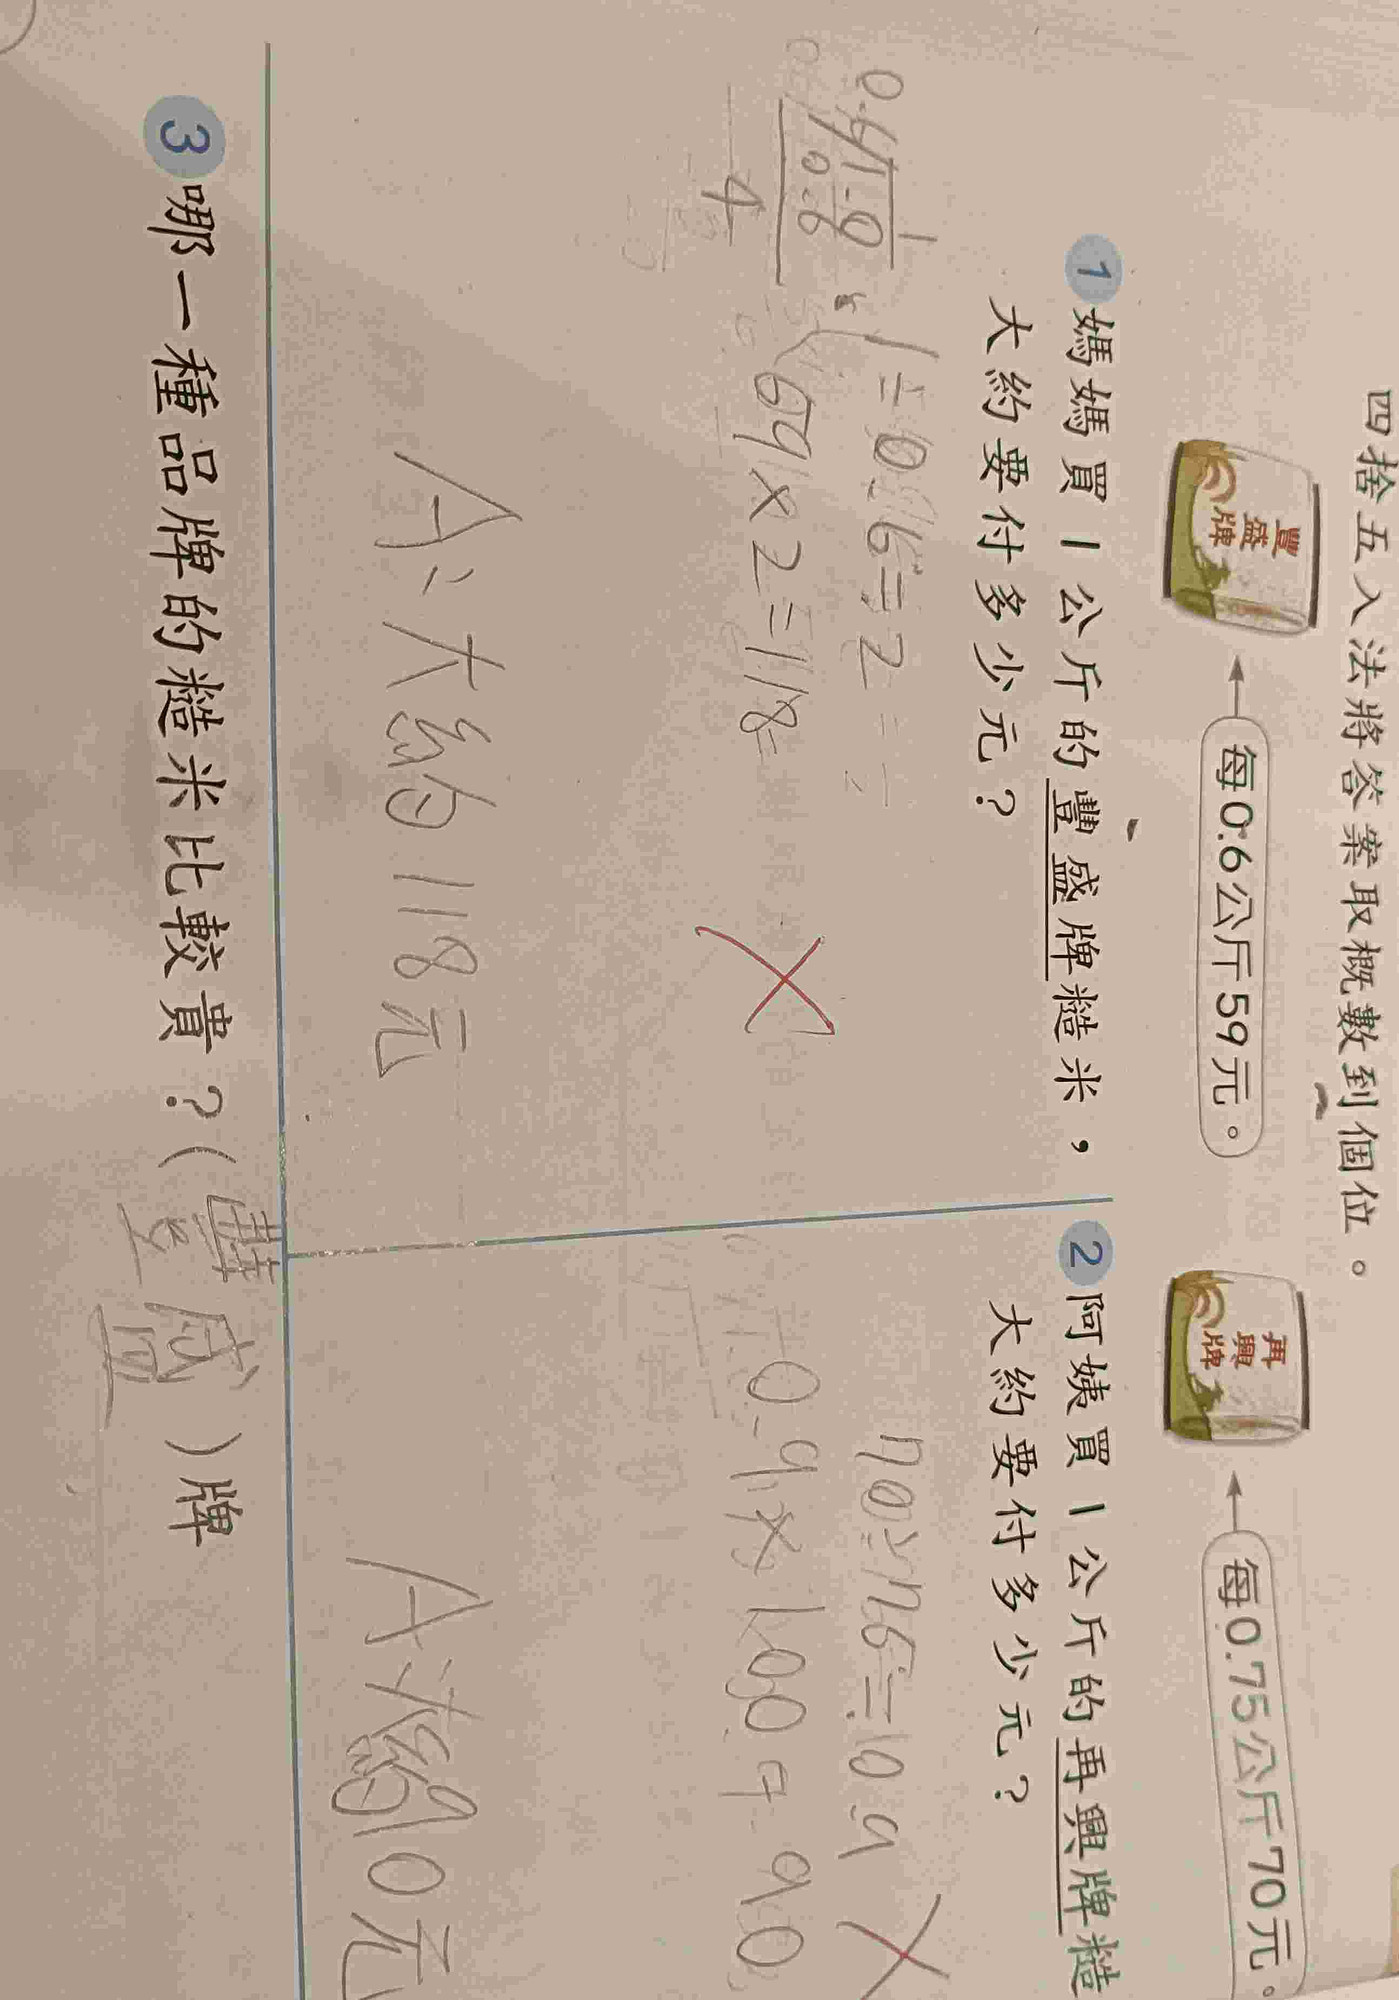 四捨五入法將答案取概數到個位。
豐盛牌
每0.6公斤59元。
再興牌
每0.75公斤70元。
1 媽媽買1公斤的豐盛牌糙米，
大約要付多少元？
59×2=118
A：大約118元
2 阿姨買1公斤的再興牌糙
大約要付多少元？
0.9×100=90
3 哪一種品牌的糙米比較貴？(豐盛)牌